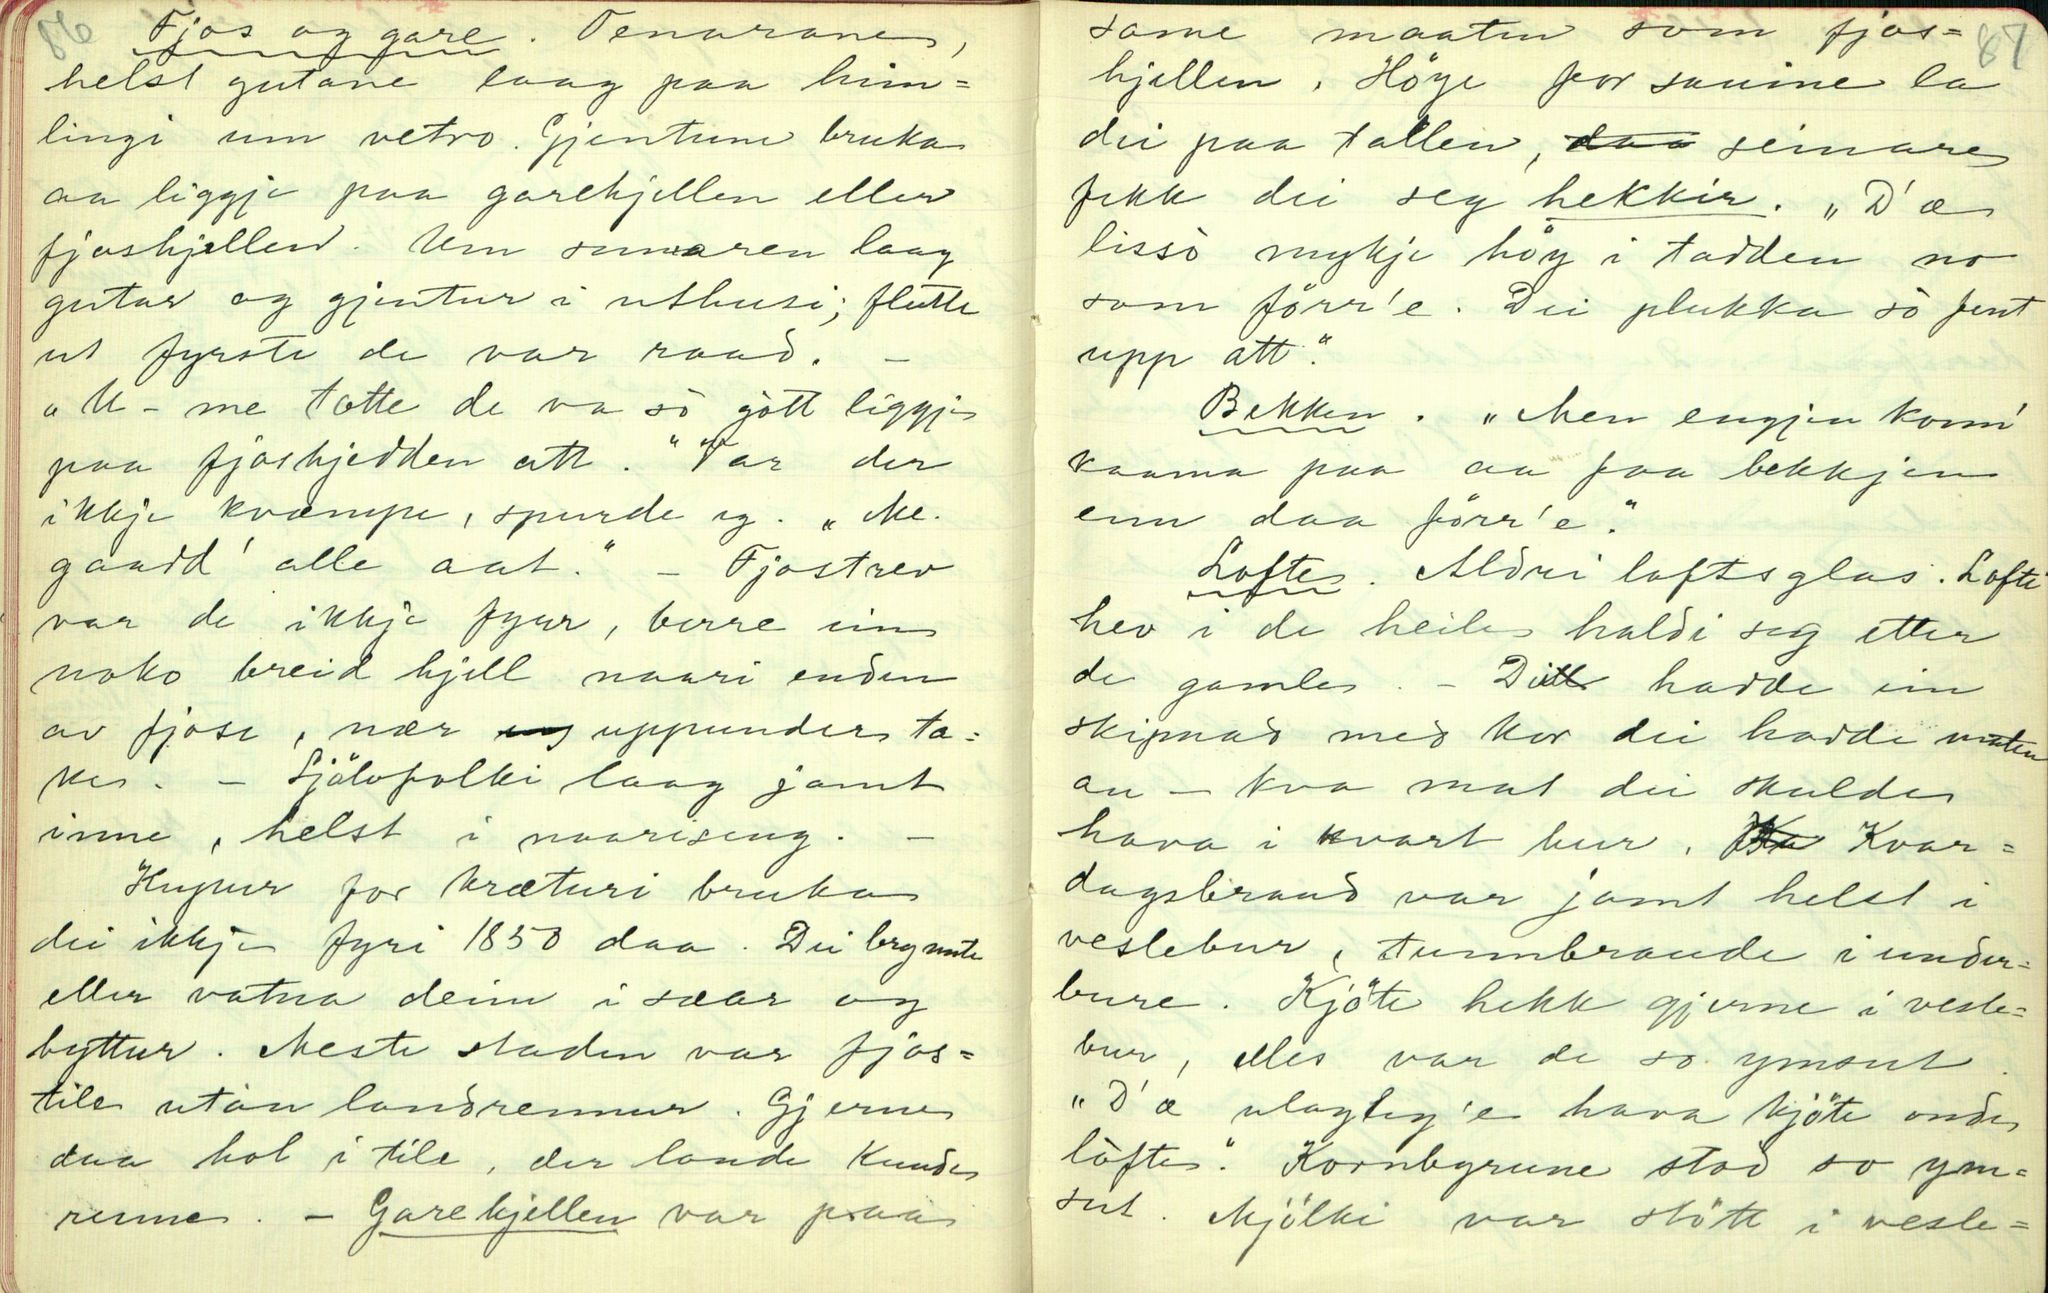 Fjos og gare. Tenarane,
helst gutane laag paa him=
lingi um vetro. Gjentune bruka
aa liggje paa garehjellen eller
fjoshjellen. Um sumaren laag
gutar og gjentur i uthusi; flutte
ut fyrste de var raad. –
"U – me totte de va sò gòtt liggje
paa fjoshjedden att." Var der
ikkje kvæmpe, spurde eg. "Me.
gaadd' alle aat." – Fjostrev
var de ikkje fyrr, berre ein
noko breid hjell naari enden
av fjose, nær uppunder ta=
ke. – Sjölvfolki laag jamt
inne, helst i naariseng. –
Krypur for kræturi bruka
dei ikkje fyri 1850 daa. Dei brynnte
eller vatna deim i saar og
byttur. Meste staden var fjos=
tile utan landrennur. Gjerne
daa hol i tile, der lande kunde
renne. – Garehjellen var paa
87
same maaten som fjos=
hjellen. Höye for sauine la
dei paa tallen, daa seinare
fekk dei seg hekkir. "D'æ
lissò mykje höy i tadden no
som förr'e. Dei plukka sò fint
upp att."
Bekken. "Men engjen kom'
kaama paa aa faa bekkjen
enn daa förr'e."
Lofte. Aldri loftsglas. Lofte
hev i de heile haldi seg etter
de gamle. – Dei hadde ein
skipnad med kor dei hadde maten
an – kva mat dei skulde
hava i kvart bur. Kvar=
dagsbraud var jamt helst i
veslebur, tunnbraude i under=
bure. Kjöte hekk gjerne i vesle=
bur, elles var de so ymsut.
"D'æ ulagleg'e hava kjöte onde
lòfte." Kornbyrune stod so ym=
sut. Mjölki var stött i vesle=